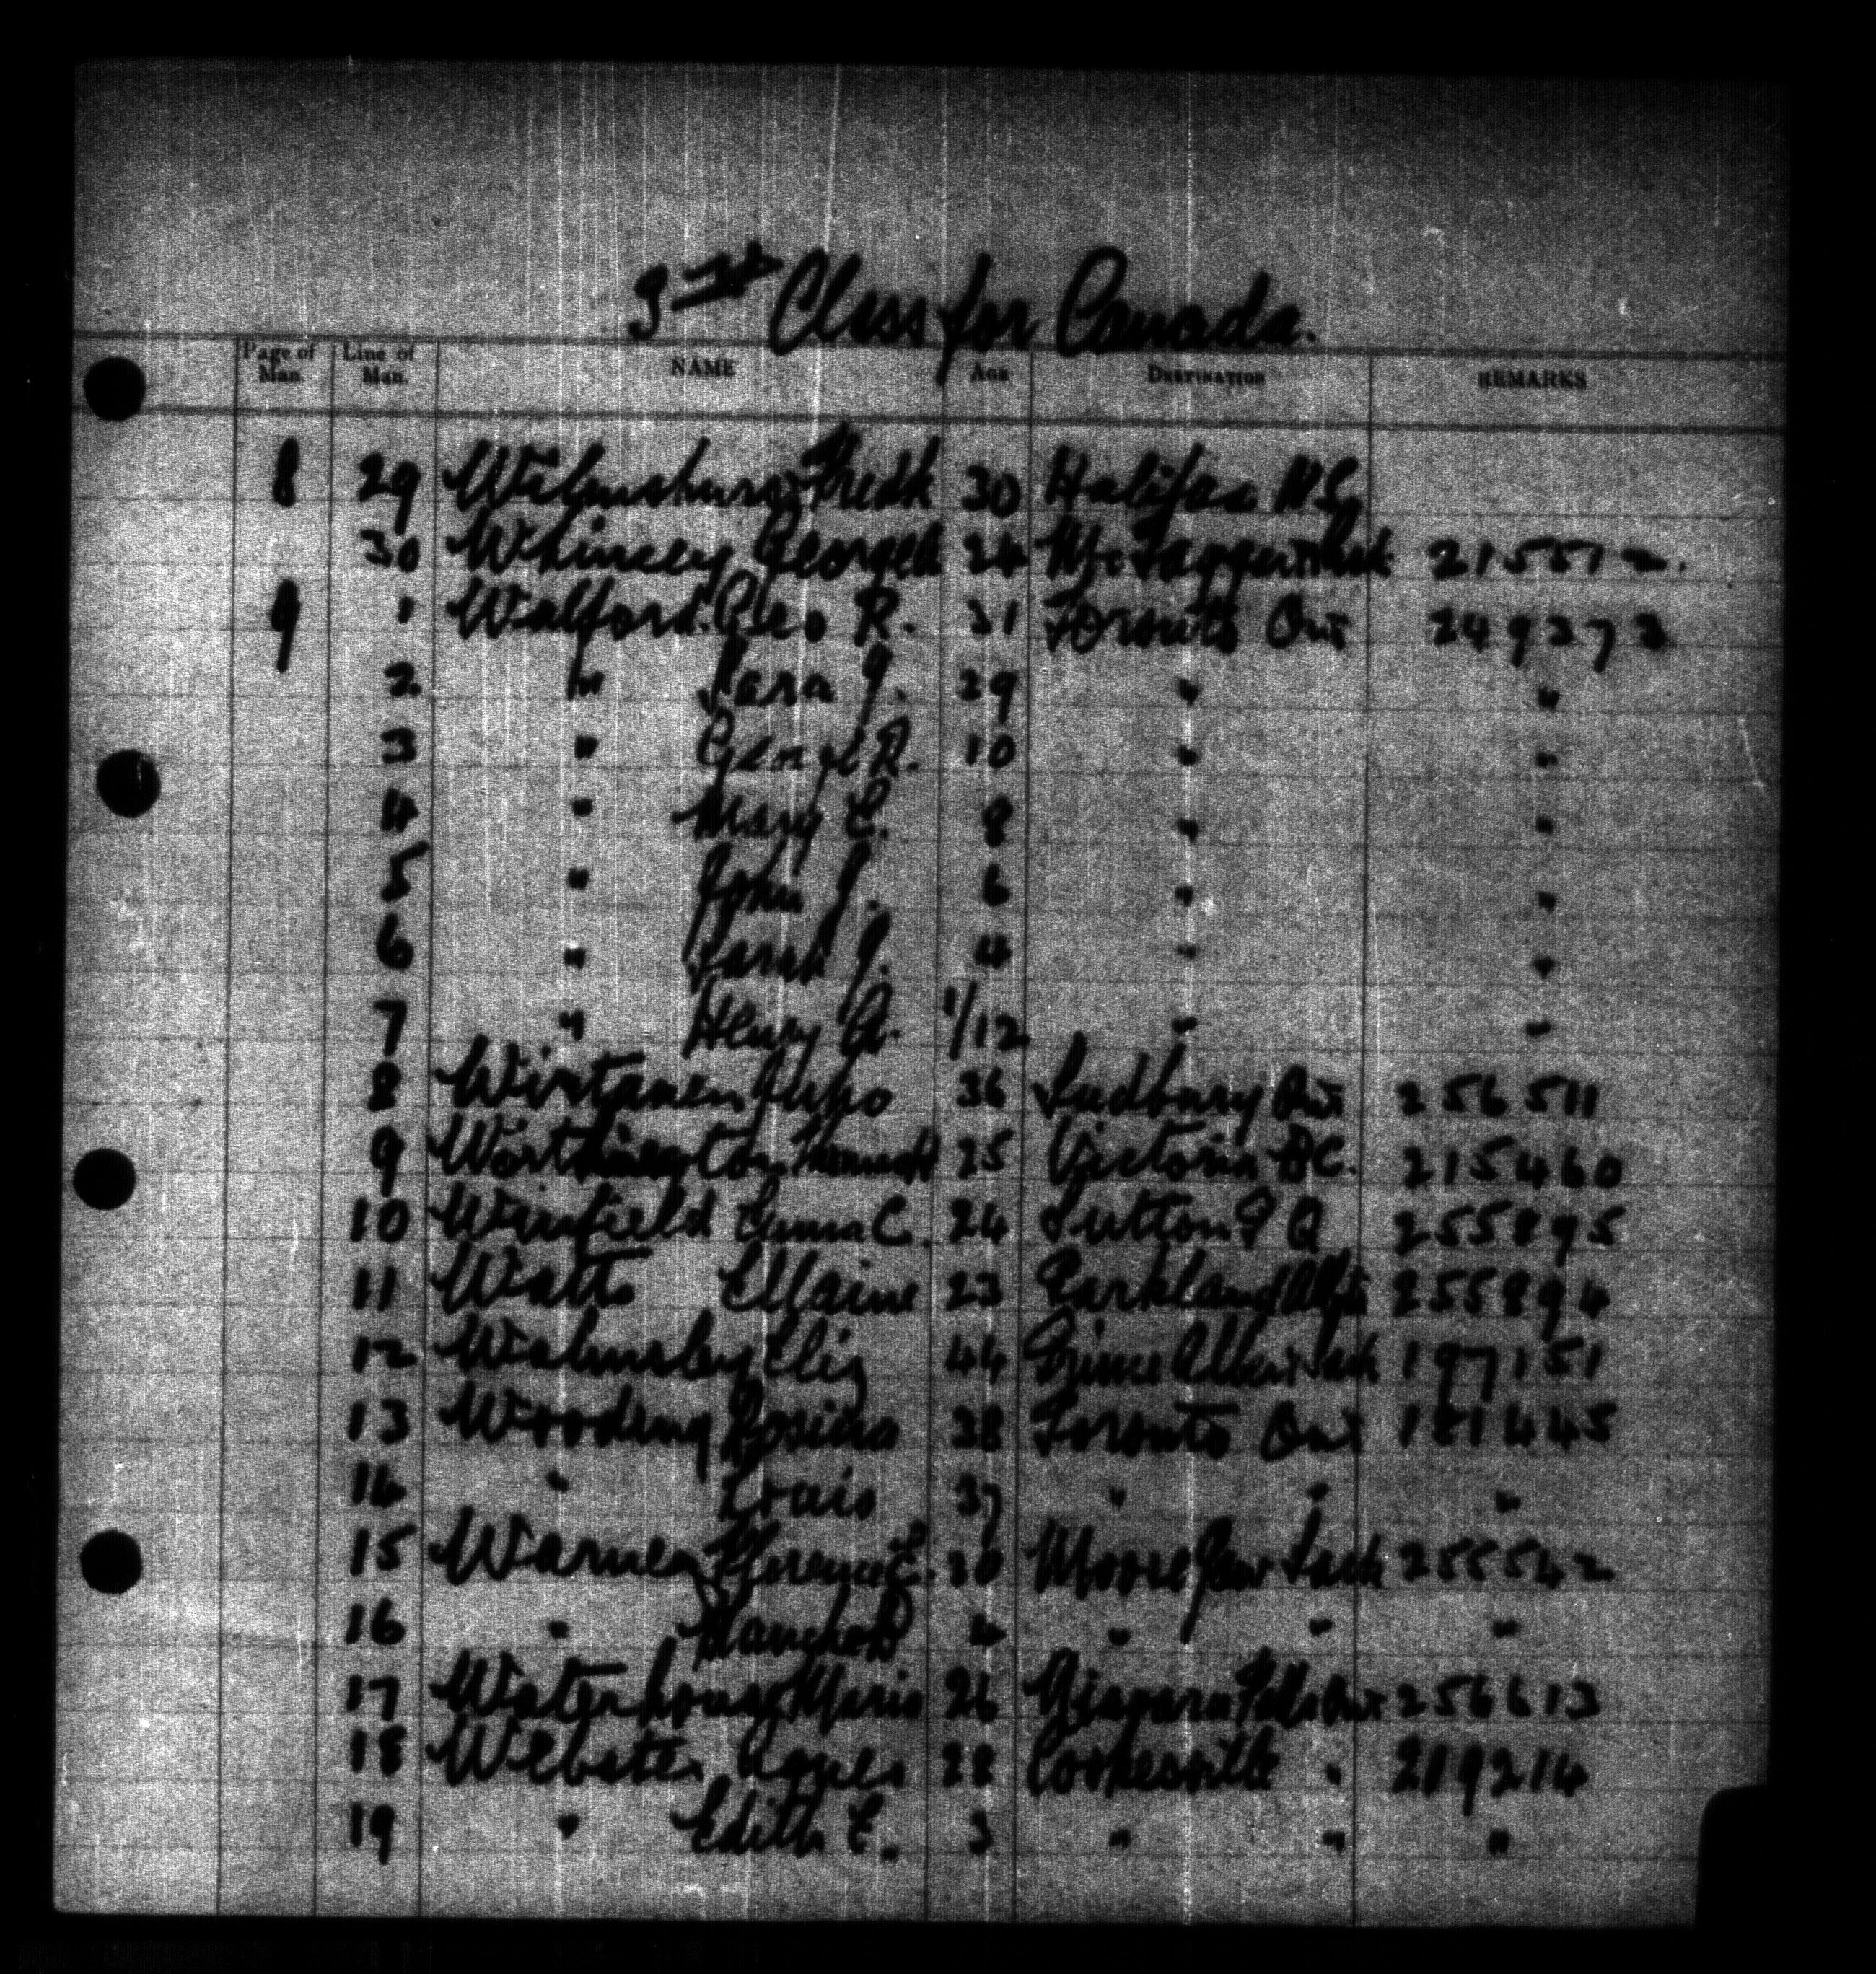 3rd Class for Canada.
Page of Man. Line of Man. NAME AGE DESTINATION REMARKS
8 29 Wilmshurst Fredk 30 Halifax N S
30 Whincey George 24 215512.
9 1 Walford Geo R. 31 Toronto Ont 249373
2 " Sara J. 29 " "
3 " George R. 10 " "
4 " Mary E. 8 " "
5 " John J. 6 " "
6 " Sarah J. 4 " "
7 " Henry A. 1/12 " "
8 Wirtanen Juho 36 Sudbury Ont 256511
9 Worthington 25 Victoria BC. 215460
10 Winfield Emma C. 24 Sutton P Q 255895
11 Watts Ellaine 23 Parkland Alta 255894
12 Walmsley Eliz 44 Prince Albert Sask 197151
13 Wooding Rosina 38 Toronto Ont 181445
14 " Louis 37 " " "
15 Warner Florence E. 30 Moose Jaw Sask 255542
16 " Blanche D 4 " " "
17 Waterhouse Marie 26 Niagara Falls Ont 256613
18 Webster Agnes 28 Cooksville " 219214
19 " Edith E. 3 " " "